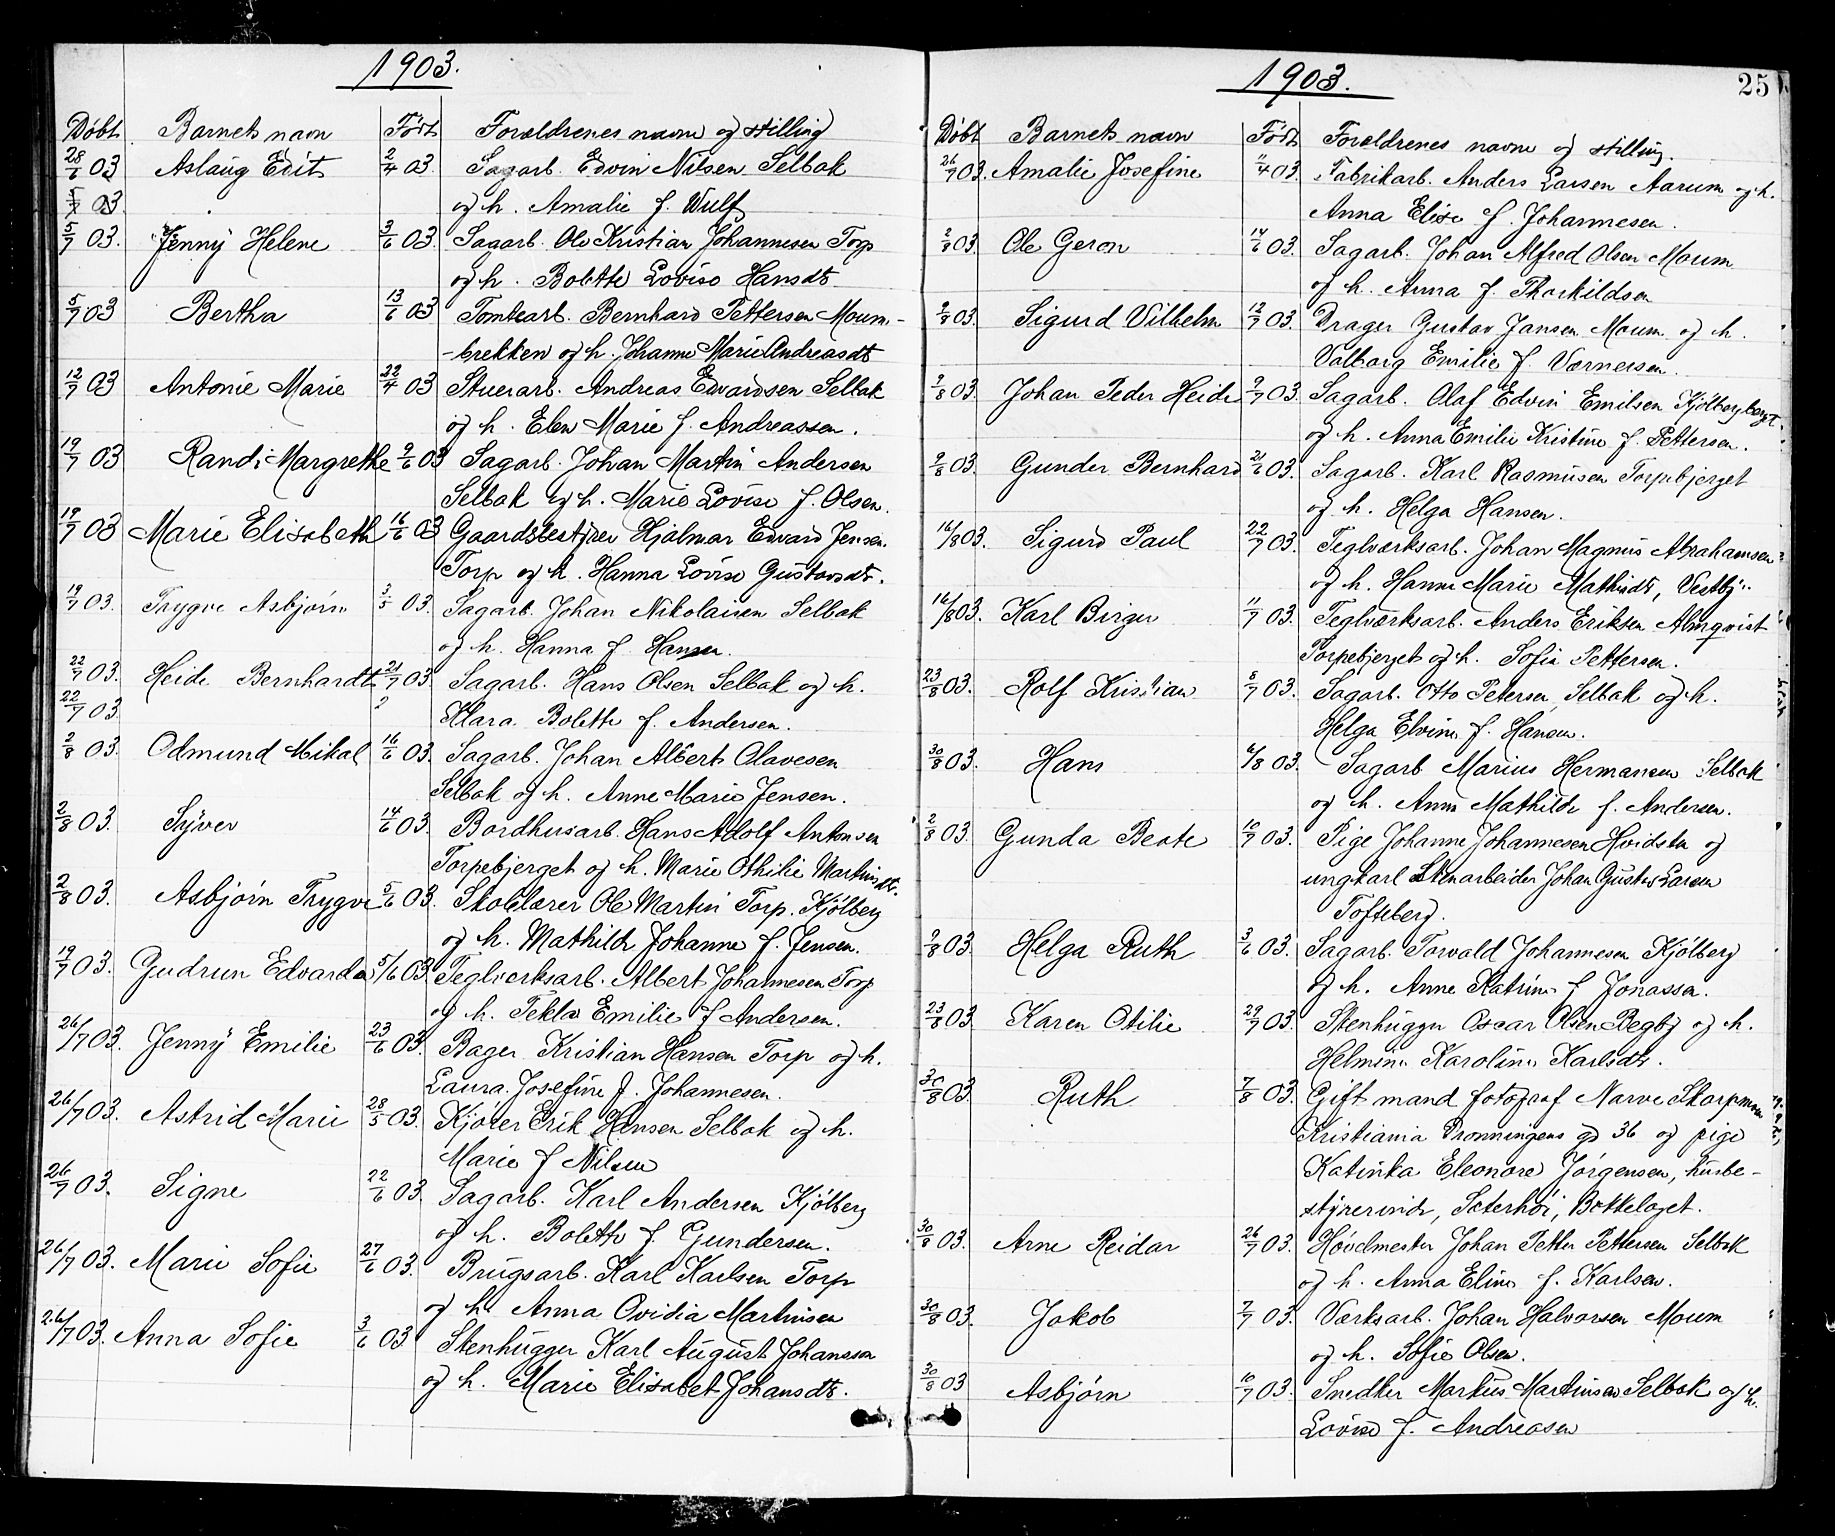 1903.
Döbt Barnets navn Födt Forældrenes navne og stilling
28/6 03 Aslaug Edit 2/4 03 Sagarb. Edvin Nilsen Selbak
5/7 03 og h. Amalie f. Wulf
5/7 03. Jenny Helene 3/6 03. Sagarb. Ole Kristian Johannesen Torp
og h. Bolette Lovise Hansdt
5/7 03 Bertha 13/6 03 Tomtearb. Bernhard Pettersen Moum-
-brekken og h. Johanne Marie Andreasdt
12/7 03 Antonie Marie 22/4 03 Stuerarb. Andreas Edvardsen Selbak
og h. Elen Marie f. Andreassen.
19/7 03 Randi Margrethe 9/6 03 Sagarb. Johan Martin Andersen
Selbak og h. Marie Lovise f. Olsen.
19/7 03 Marie Elisabeth 16/6 03 Gaardsbestyrer Hjalmar Edvard Jensen.
Torp og h. Hanna Lovise Gustavsdt.
19/7 03. Trygve Asbjørn 3/5 03. Sagarb. Johan Nikolaisen Selbak
og h. Hanna f. Hansen.
22/7 03. Heide Bernhardt 21/7 03. Sagarb. Hans Olsen Selbak og h.
22/7 03. ? Klara Bolette f. Andersen.
2/8 03. Odmund Mikal 16/6 03. Sagarb. Johan Albert Olavesen
Selbak og h. Anne Marie Jensen.
2/8 03. Syver 14/6 03. Bordhusarb. Hans Adolf Antonsen
Torpebjerget og h. Marie Othilie Martinsdt.
2/8 03. Asbjørn Trygve 5/6 03. Skolelærer Ole Martin Torp. Kjölberg
og h. Mathilde Johanne f. Jensen.
19/7 03. Gudrun Edvarda 5/6 03. Teglverksarb. Albert Johannesen Torp
og h. Tekla Emilie f Andersen.
26/7 03. Jenny Emilie 23/6 03. Bager Kristian Hansen Torp og h.
Laura Josefine f. Johannesen.
26/7 03. Astrid Marie 28/5 03. Kjører Erik Hansen Selbak og h.
Marie f Nilsen
26/7 03. Signe 22/6 03. Sagarb. Karl Andersen Kjölberg
og h. Bolette f. Gundersen.
26/7 03. Marie Sofie 27/6 03. Brugsarb. Karl Karlsen Torp
og h. Anna Ovidia Martinsen
26/7 03. Anna Sofie 3/6 03 Stenhugger Karl August Johansson
og h. Marie Elisabet Johansdt.
1903. 25
Döbt Barnets navn Födt Forældrenes navne og stilling.
26/7 03. Amalie Josefine 11/4 03. Fabrikarb. Anders Larsen Aarum og h.
Anna Elise f. Johannesen.
2/8 03. Ole Geron 14/6 03. Sagarb. Johan Alfred Olsen Moum
og h. Anna f. Thorkildsen
2/8 03. Sigurd Vilhelm 12/7 03. Drager Gustav Jansen Moum og h.
Valborg Emilie f. Værnersen.
9/8 03. Johan Peder Heide 9/7 03. Sagarb. Olaf Edvin Emilsen Kjölbergberget
og h. Anna Emilie Kristine f. Pettersen.
9/8 03. Gunder Bernhard 21/6 03. Sagarb. Karl Rasmusen Torpebjerget
og h. Helga Hansen.
16/8 03. Sigurd Paul 22/7 03. Teglværksarb. Johan Magnus Abrahamsen
og h. Hanna Marie Mathisdt, Vestby.
16/8 03. Karl Birger 11/7 03. Teglværksarb. Anders Eriksen Almqvist
Torpebjerget og h. Sofie Pettersen.
23/8 03. Rolf Kristian 8/7 03. Sagarb. Otto Petersen, Selbak og h.
Helga Elvine f. Hansen.
30/8 03. Hans 6/8 03. Sagarb Marius Hermansen Selbak
og h. Anna Mathilde f. Andersen.
2/8 03. Gunda Beate 10/7 03. Pige Johanne Johannesen Hvidsten og
ungkarl Stenarbeider Johan Gustav Larsen
Tofteberg.
9/8 03. Helga Ruth 3/6 03. Sagarb. Torvald Johannesen Kjölberg
og h. Anne Katrine f Jonassen.
23/8 03. Karen Otilie 29/7 03. Stenhugger Oscar Olsen Begby og h.
Helmine Karoline Karlsdt.
30/8 03. Ruth 7/8 03. Gift mand fotograf Narve Skarpmoen
Kristiania Dronningens gd 36 og pige
Katinka Eleonore Jörgensen, husbe-
styrerinde, Sæterhöi, Bottelaget.
30/8 03. Arne Reidar 26/7 03. Hövelmester Johan Petter Pettersen Selbak
og h. Anna Eline f. Karlsen.
30/8 03. Jakob 7/7 03. Værksarb. Johan Halvorsen Moum
og h. Sofie Olsen.
30/8 03 Asbjørn 10/7 03. Snedker Markus Martinsen Selbak og h.
Lovise f. Andreasen